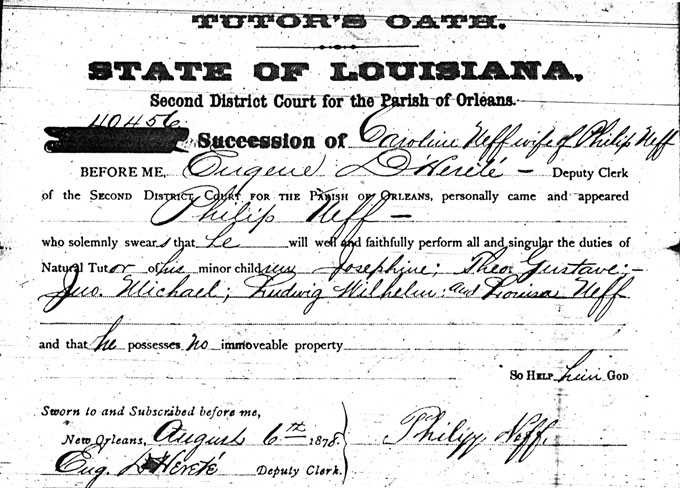 TUTOR'S OATH.
STATE OF LOUISIANA,
Second District Court for the Parish of Orleans.
40456
Succession of Caroline Neff wife of Philip Neff
BEFORE ME, Eugene D'Hereté — Deputy Clerk
of the SECOND DISTRICT COURT FOR THE PARISH OF ORLEANS, personally came and appeared
Philip Neff —
who solemnly swears that he will well and faithfully perform all and singular the duties of
Natural Tutor of his minor children Josephine; Theo. Gustave; —
Jno. Michael; Ludwig Wilhelm; and Louisa Neff
and that he possesses no immoveable property
SO HELP him GOD
Sworn to and Subscribed before me,
New Orleans, August 6th 1878.
Philipp Neff
Eug. D'Hereté Deputy Clerk.